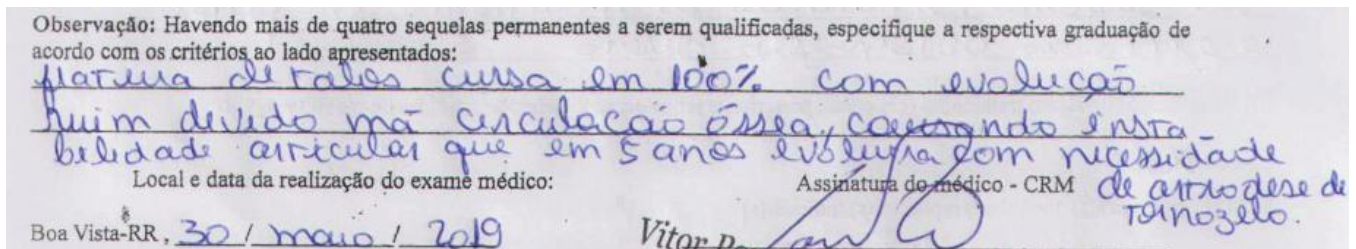 Observação: Havendo mais de quatro sequelas permanentes a serem qualificadas, especifique a respectiva graduação de
acordo com os critérios ao lado apresentados:
fratura de talos cursa em 100% com evolução
ruim devido má circulação óssea, causando insta-
bilidade articular que em 5 anos evoluira com necessidade
de artrodese de
tornozelo.
Local e data da realização do exame médico:
Assinatura do médico - CRM
Boa Vista-RR, 30 / maio / 2019
Vitor P